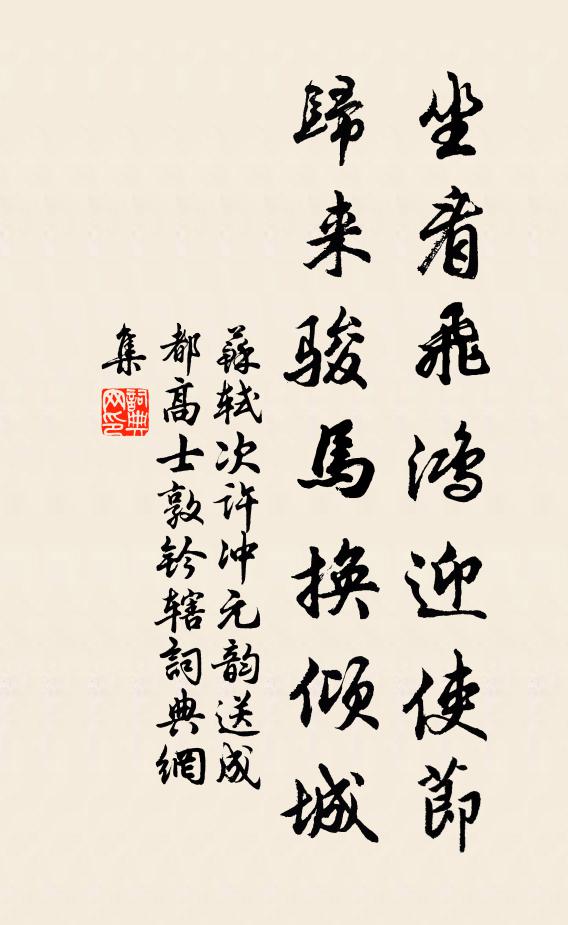 坐看飛鴻迎使節
歸来駿馬換傾城
蘇軾次許沖元韵送成
都高士敦鈐轄詞典網
集
詞典
网印